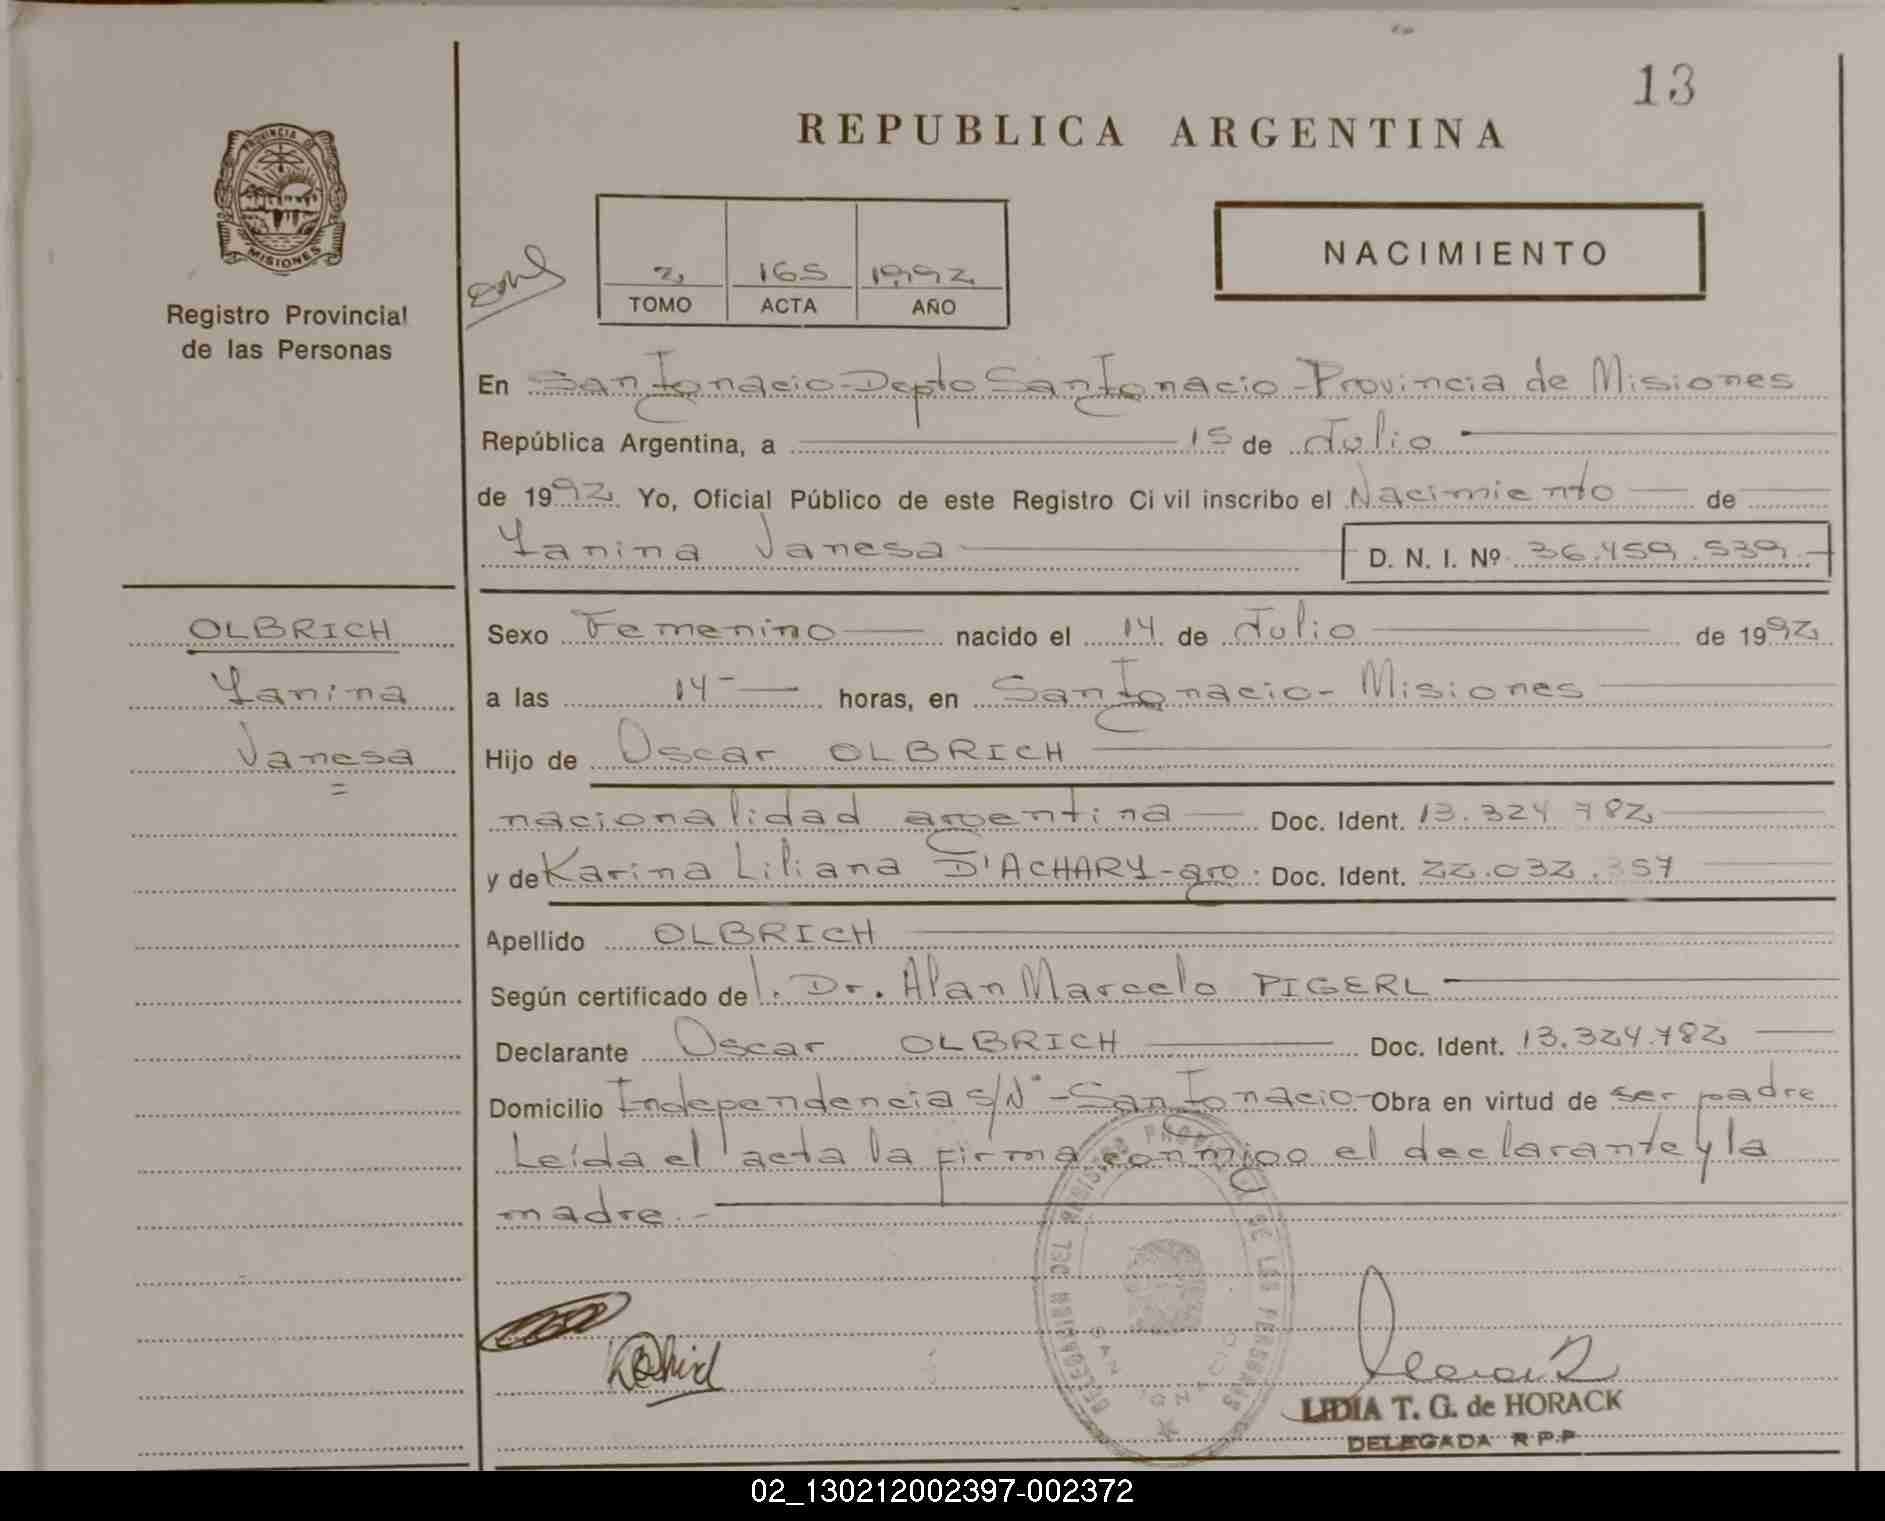 13
REPUBLICA ARGENTINA
PROVINCIA DE
MISIONES
Registro Provincial
de las Personas
2 165 1992
TOMO ACTA AÑO
NACIMIENTO
En San Ignacio - Depto San Ignacio - Provincia de Misiones
República Argentina, a 15 de Julio
de 1992 Yo, Oficial Público de este Registro Civil inscribo el Nacimiento de
Yanina Vanesa D. N. I. Nº 36.459.539.-
OLBRICH
Yanina
Vanesa
=
Sexo Femenino nacido el 14 de Julio de 1992
a las 14 horas, en San Ignacio - Misiones
Hijo de Oscar OLBRICH
nacionalidad argentina Doc. Ident. 13.324 782
y de Karina Liliana D'ACHARY - Doc. Ident. 22.032.357
Apellido OLBRICH
Según certificado de Dr. Alan Marcelo PIGERL
Declarante Oscar OLBRICH Doc. Ident. 13.324.782
Domicilio Independencia s/Nº - San Ignacio - Obra en virtud de ser padre
Leída el acta la firma conmigo el declarante y la
madre.-
DELEGACION REGISTRO PROVINCIAL DE LAS PERSONAS
SAN IGNACIO
LIDIA T. G. de HORACK
DELEGADA R.P.P
02_130212002397-002372